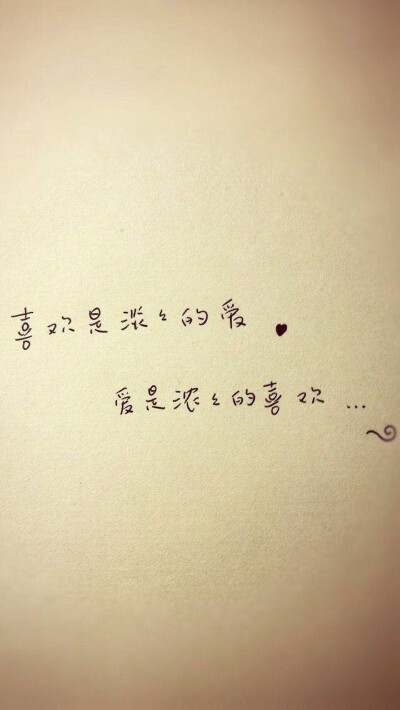 喜欢是淡々的爱
爱是浓々的喜欢 ...